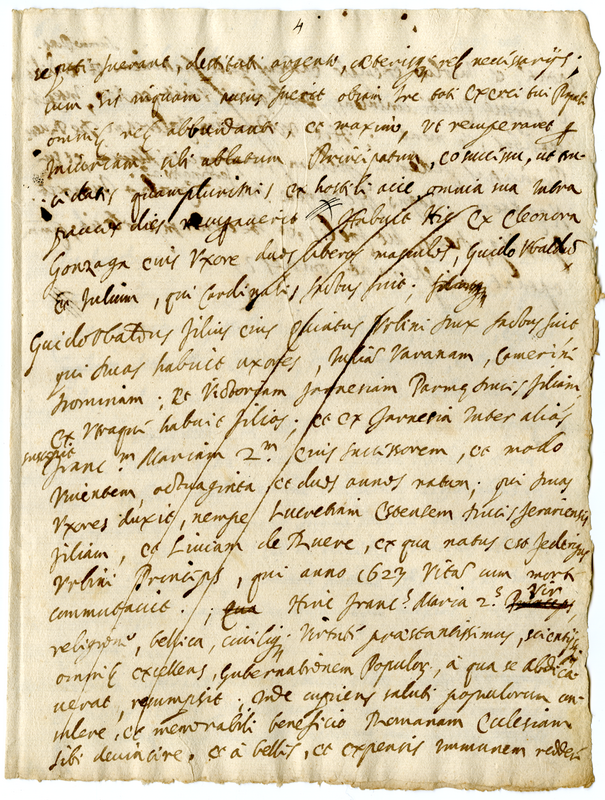 4
fuerant, destituti argento, cæterisq reb necessarijs;
cum sis nequam ausus fuerit obviam Ire tot exercitui
omnib reb abbundanti, et maximo, ut recuperaret
Iniuriam sibi ablatum Principatum, eo successu, ut
quamplurimis, ex hostili acie, omnia sua Intra
paucos dies recuperaverit Habuit Hic ex Eleonora
Gonzaga eius Uxore duos liberos masculos, Guido Ubaldū
et Iulium, qui Cardinalis factus fuit;
Guidobaldus filius eius quintus Urbini Dux factus fuit
qui duas habuit uxores, Iuliā Varanam, Camerini
Dominam; Et Victoriam Farnesiam Parmę Ducis filiam,
Ex Utraqu habuit filios; et ex Farnesia Inter alios
suscepit
Franc.m Mariam 2.m eius successorem, et modo
Viventem, octuaginta et duos annos natum; qui duas
Uxores duxit, nempe Lucretiam Estensem Ducis Ferariensis
filiam, et Liviam de Ruere, ex qua natus est Federicus
Urbini Princeps, qui anno 1623 Vitā cum morte
commutavit.; Qua Hinc Franc.s Maria 2.s Princeps Vir
religione, bellica, civiliq; Virtute præstantissimus, scientijs
omnib excellens, Gubernationem Populor., à qua se abdica-
verat, resumpsit; Inde cupiens saluti populorum con-
sulere, et memorabili beneficio Romanam Ecclesiam
sibi devincire. et à bellis, et expensis Immunem reddere